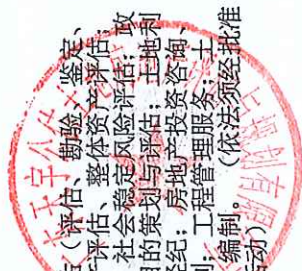 （评估、勘验、鉴定、
评估、整体资产评估；
社会稳定风险评估；政
的策划与评估；土地利
经纪；房地产投资咨询、
划；工程管理服务；土
编制。（依法须经批准
活动）
天宇
规划有限